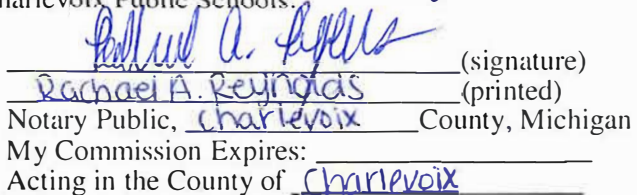 Charlevoix Public Schools.
(signature)
Rachael A. Reynolds (printed)
Notary Public, Charlevoix County, Michigan
My Commission Expires:
Acting in the County of Charlevoix